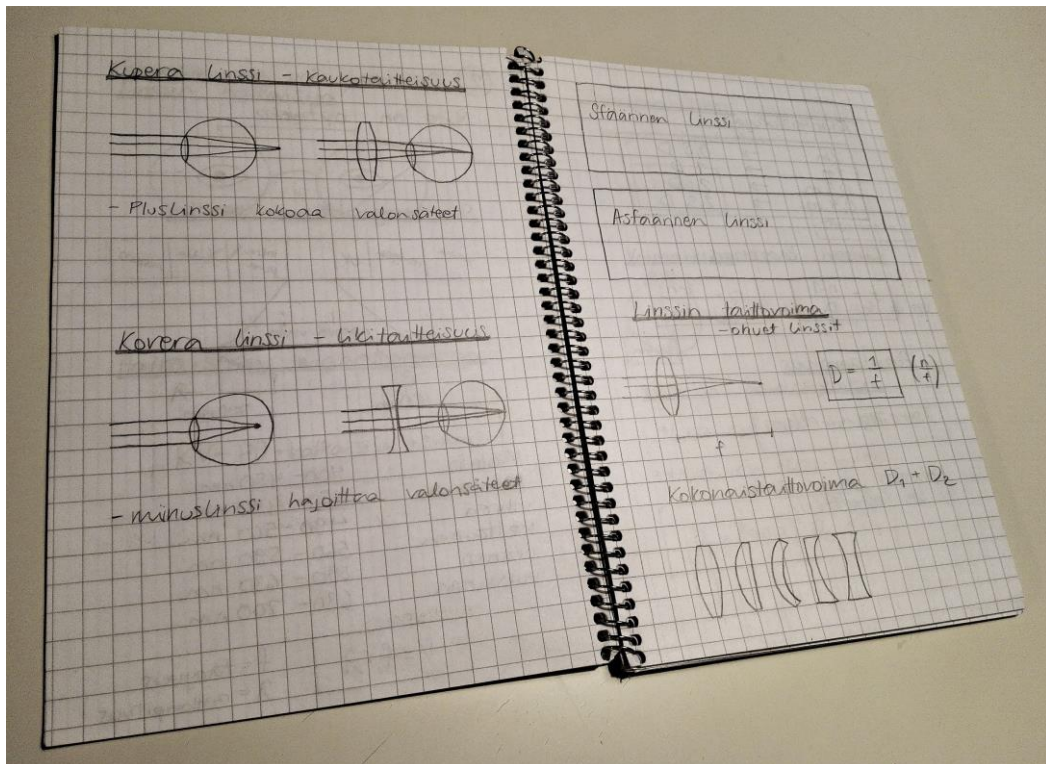 Kupera linssi - kaukotaitteisuus
- Pluslinssi kokoaa valonsäteet
Kovera linssi - likitaitteisuus
- minuslinssi hajoittaa valonsäteet
Sfäärinen linssi
Asfäärinen linssi
Linssin taittovoima
- ohuet linssit
D = 1/f (n/f)
f
Kokonaistaittovoima D₁ + D₂